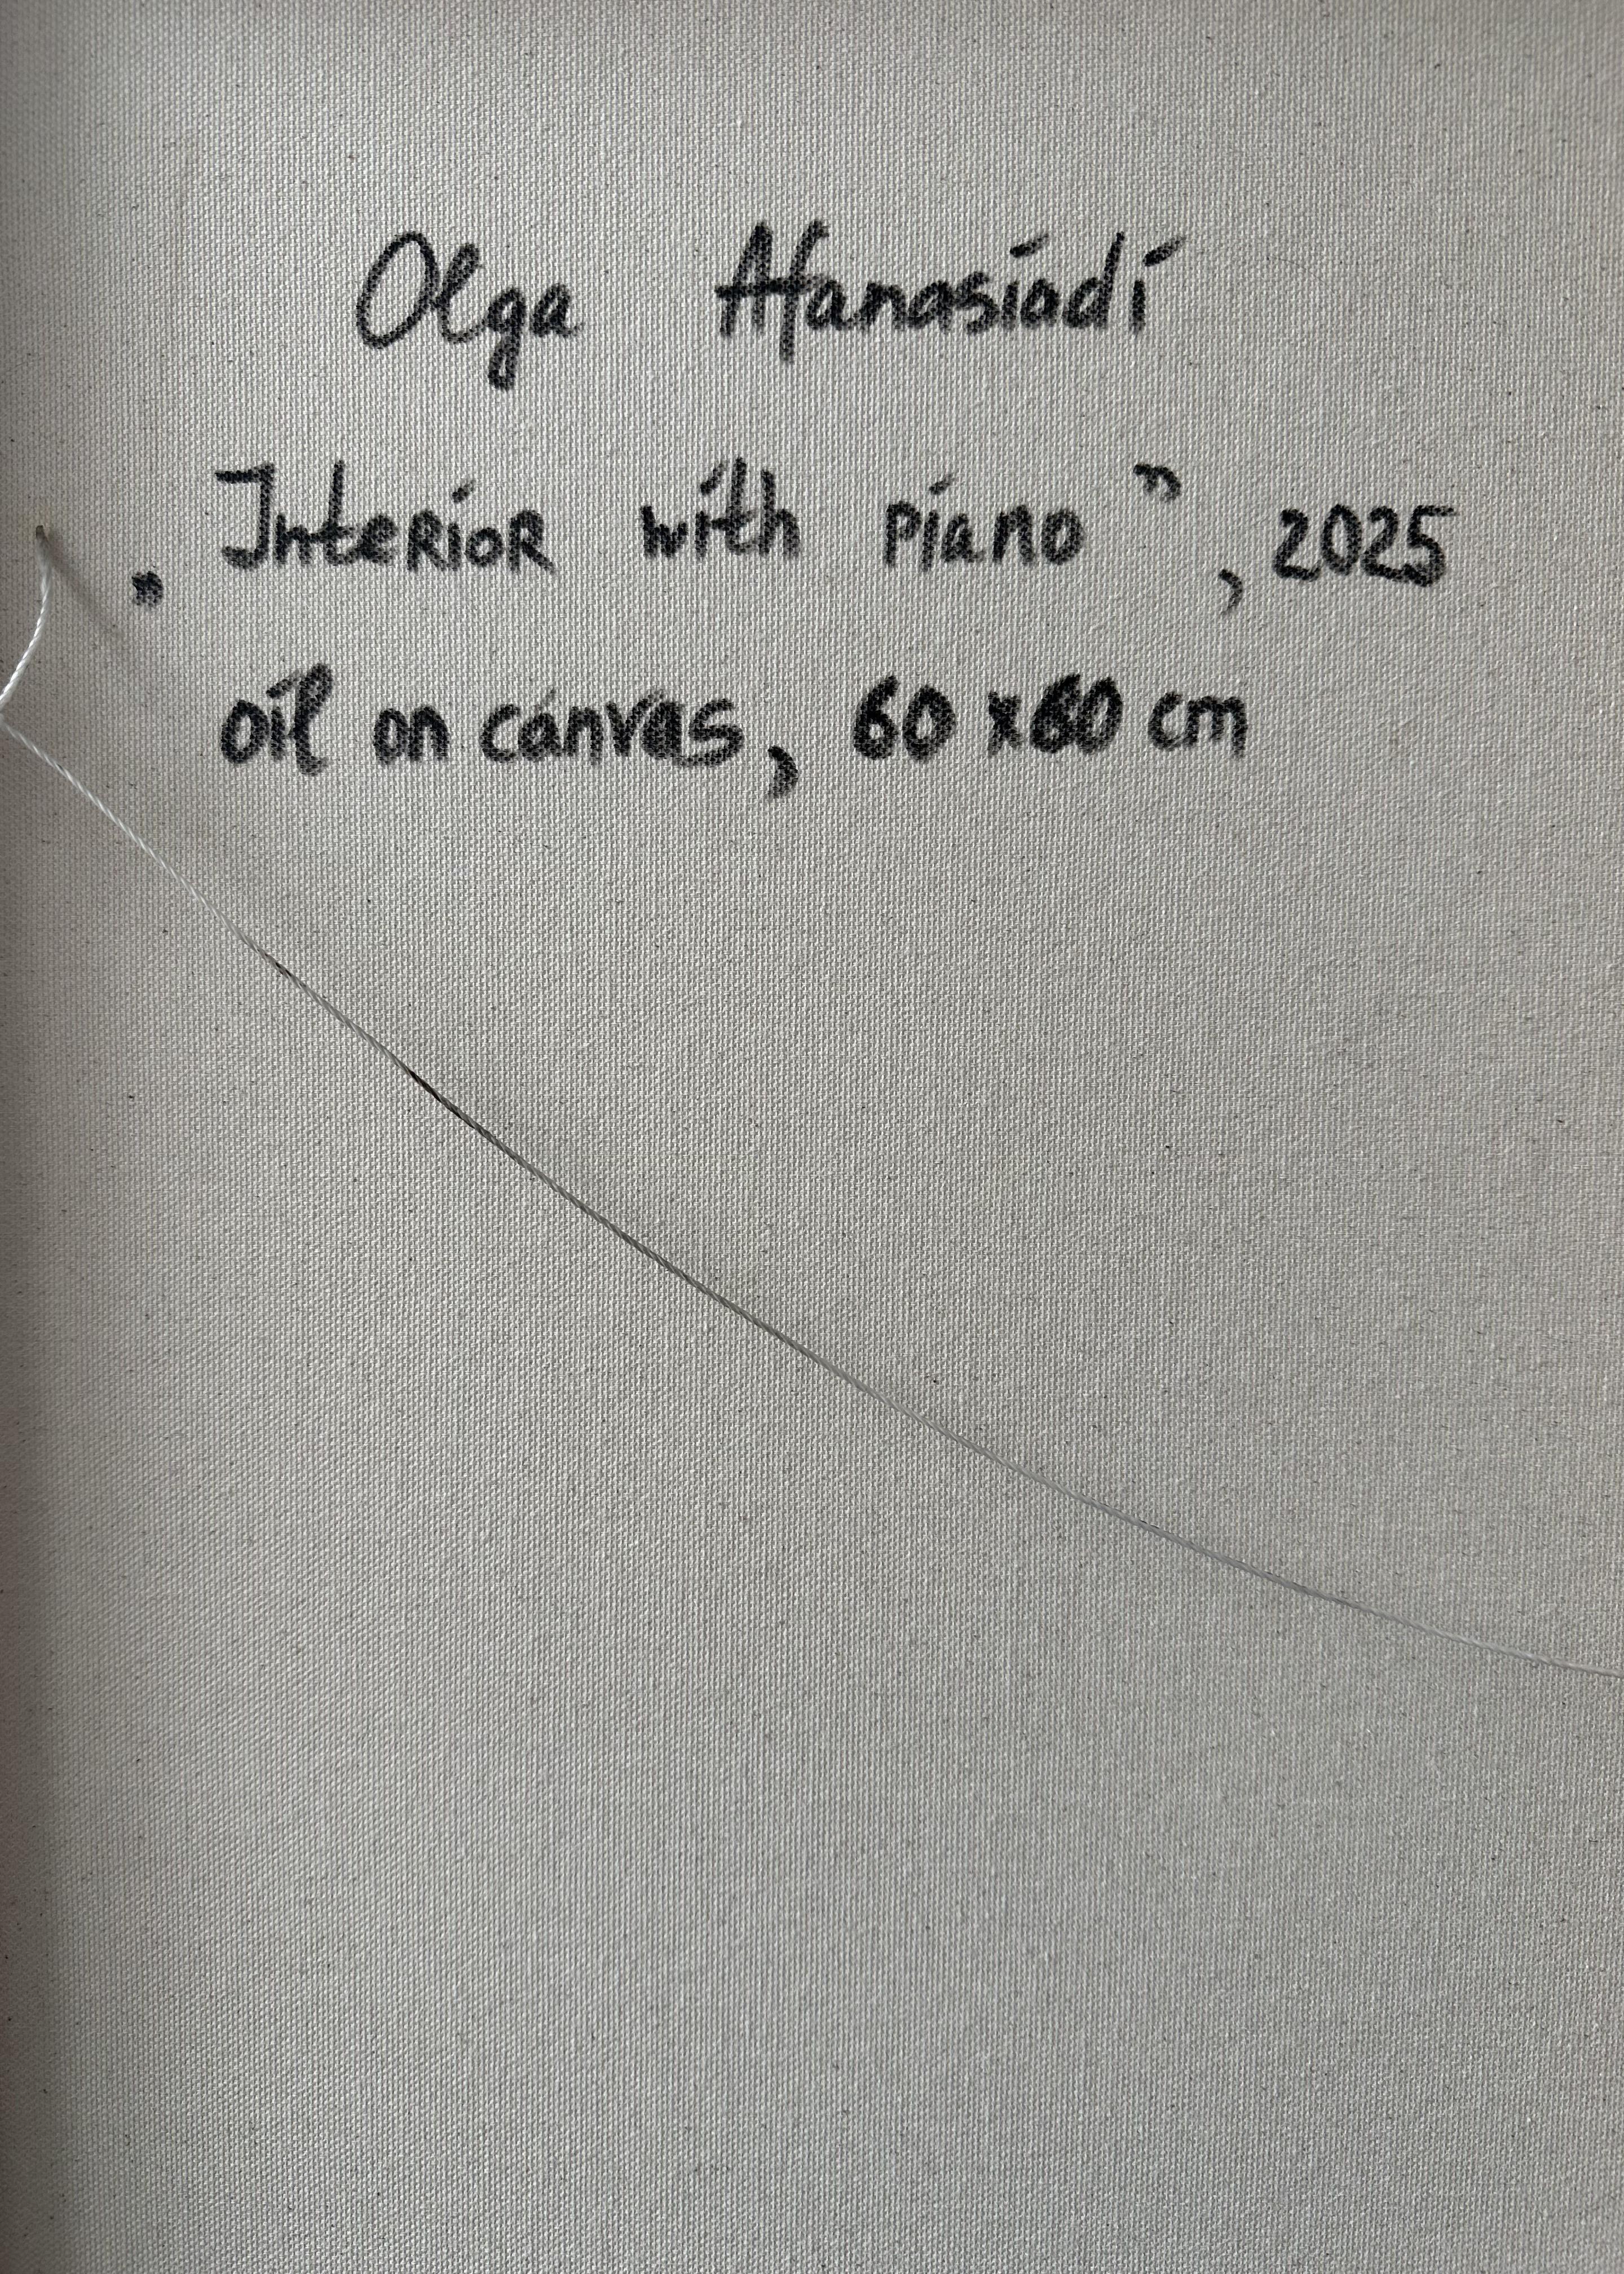 Olga Afanasiadi
„Interior with piano”, 2025
oil on canvas, 60 x 60 cm